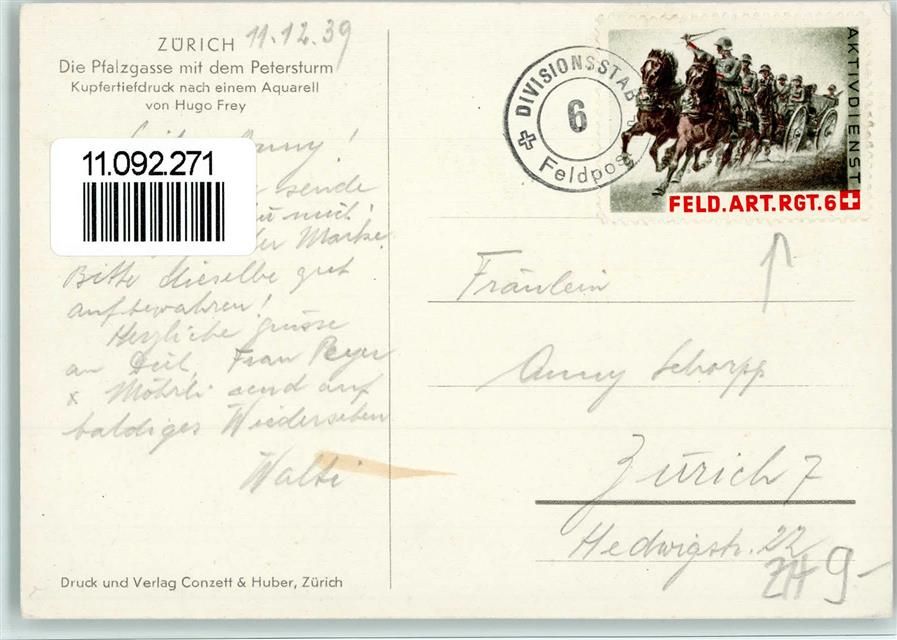 ZÜRICH 11.12.39
Die Pfalzgasse mit dem Petersturm
Kupfertiefdruck nach einem Aquarell
von Hugo Frey
11.092.271
sende
der Marke.
Bitte dieselbe gut
aufbewahren!
Herzliche Grüsse
an Frau Peyer
x Möhrli auf
baldiges Wiedersehen
Walti
Druck und Verlag Conzett & Huber, Zürich
DIVISIONSSTAB
6
Feldpost
AKTIVDIENST
FELD.ART.RGT.6
Fräulein
Anny Schorpp
Zürich 7
Hedwigstr. 22
ZH 9-